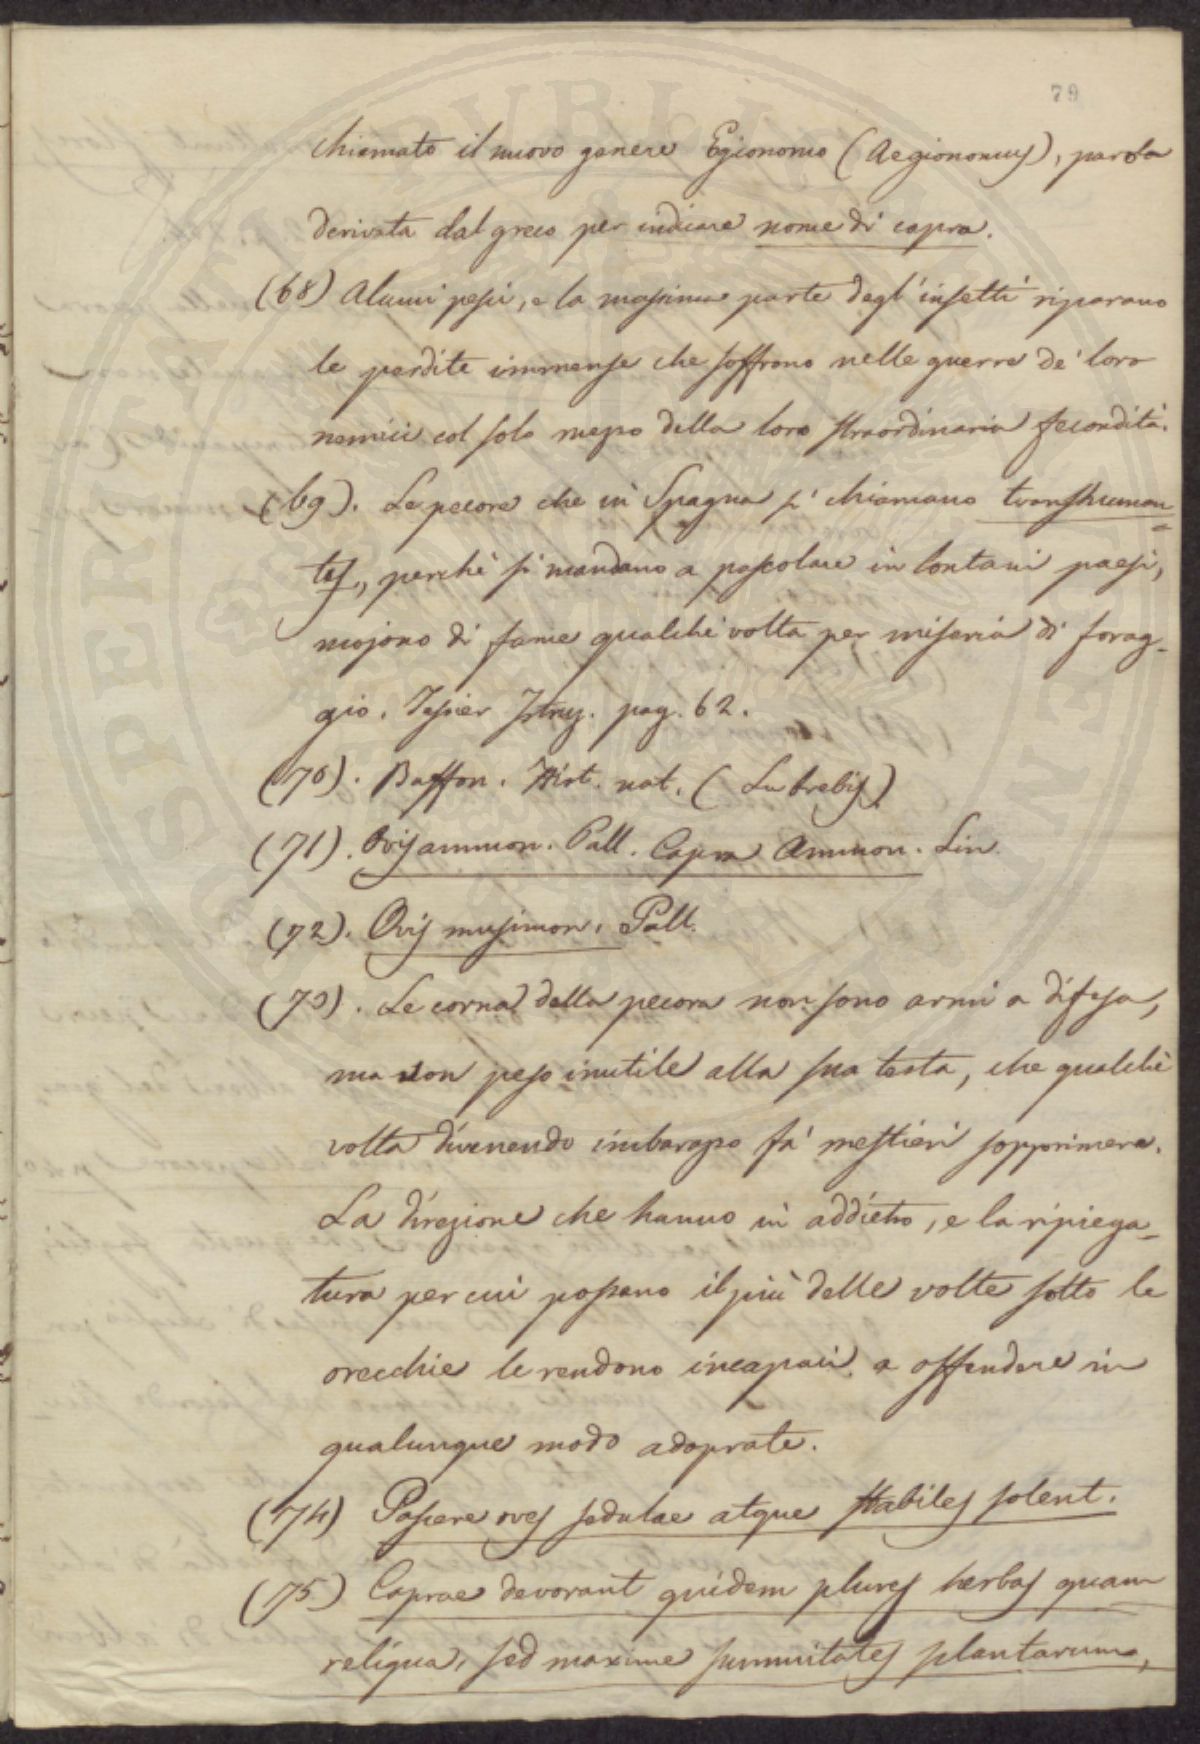 79
chiamato il nuovo genere Egionomo (Aegionomus), parola
derivata dal greco per indicare nome di capra.
(68) Alcuni pesci, e la massima parte degl'insetti riparano
le perdite immense che soffrono nelle guerre de' loro
nemici col solo mezzo della loro straordinaria fecondità.
(69). Le pecore che in Spagna si chiamano transhuman=
tes, perchè si mandano a pascolare in lontani paesi,
mojono di fame qualche volta per miseria di forag-
gio. Tessier Istruz. pag. 62.
(70). Buffon. Hist. nat. (La brebis)
(71). Ovis ammon. Pall. Capra Ammon. Lin.
(72). Ovis musimon. Pall.
(73). Le corna della pecora non sono armi a difesa,
ma son peso inutile alla sua testa, che qualche
volta divenendo imbarazzo fa' mestieri sopprimere.
La direzione che hanno in addietro, e la ripiega-
tura per cui passano il più delle volte sotto le
orecchie le rendono incapaci a offendere in
qualunque modo adoprate.
(74) Pascere oves sedulae atque stabiles solent.
(75) Caprae devorant quidem plures herbas quam
reliqua, sed maxime summitates plantarum,